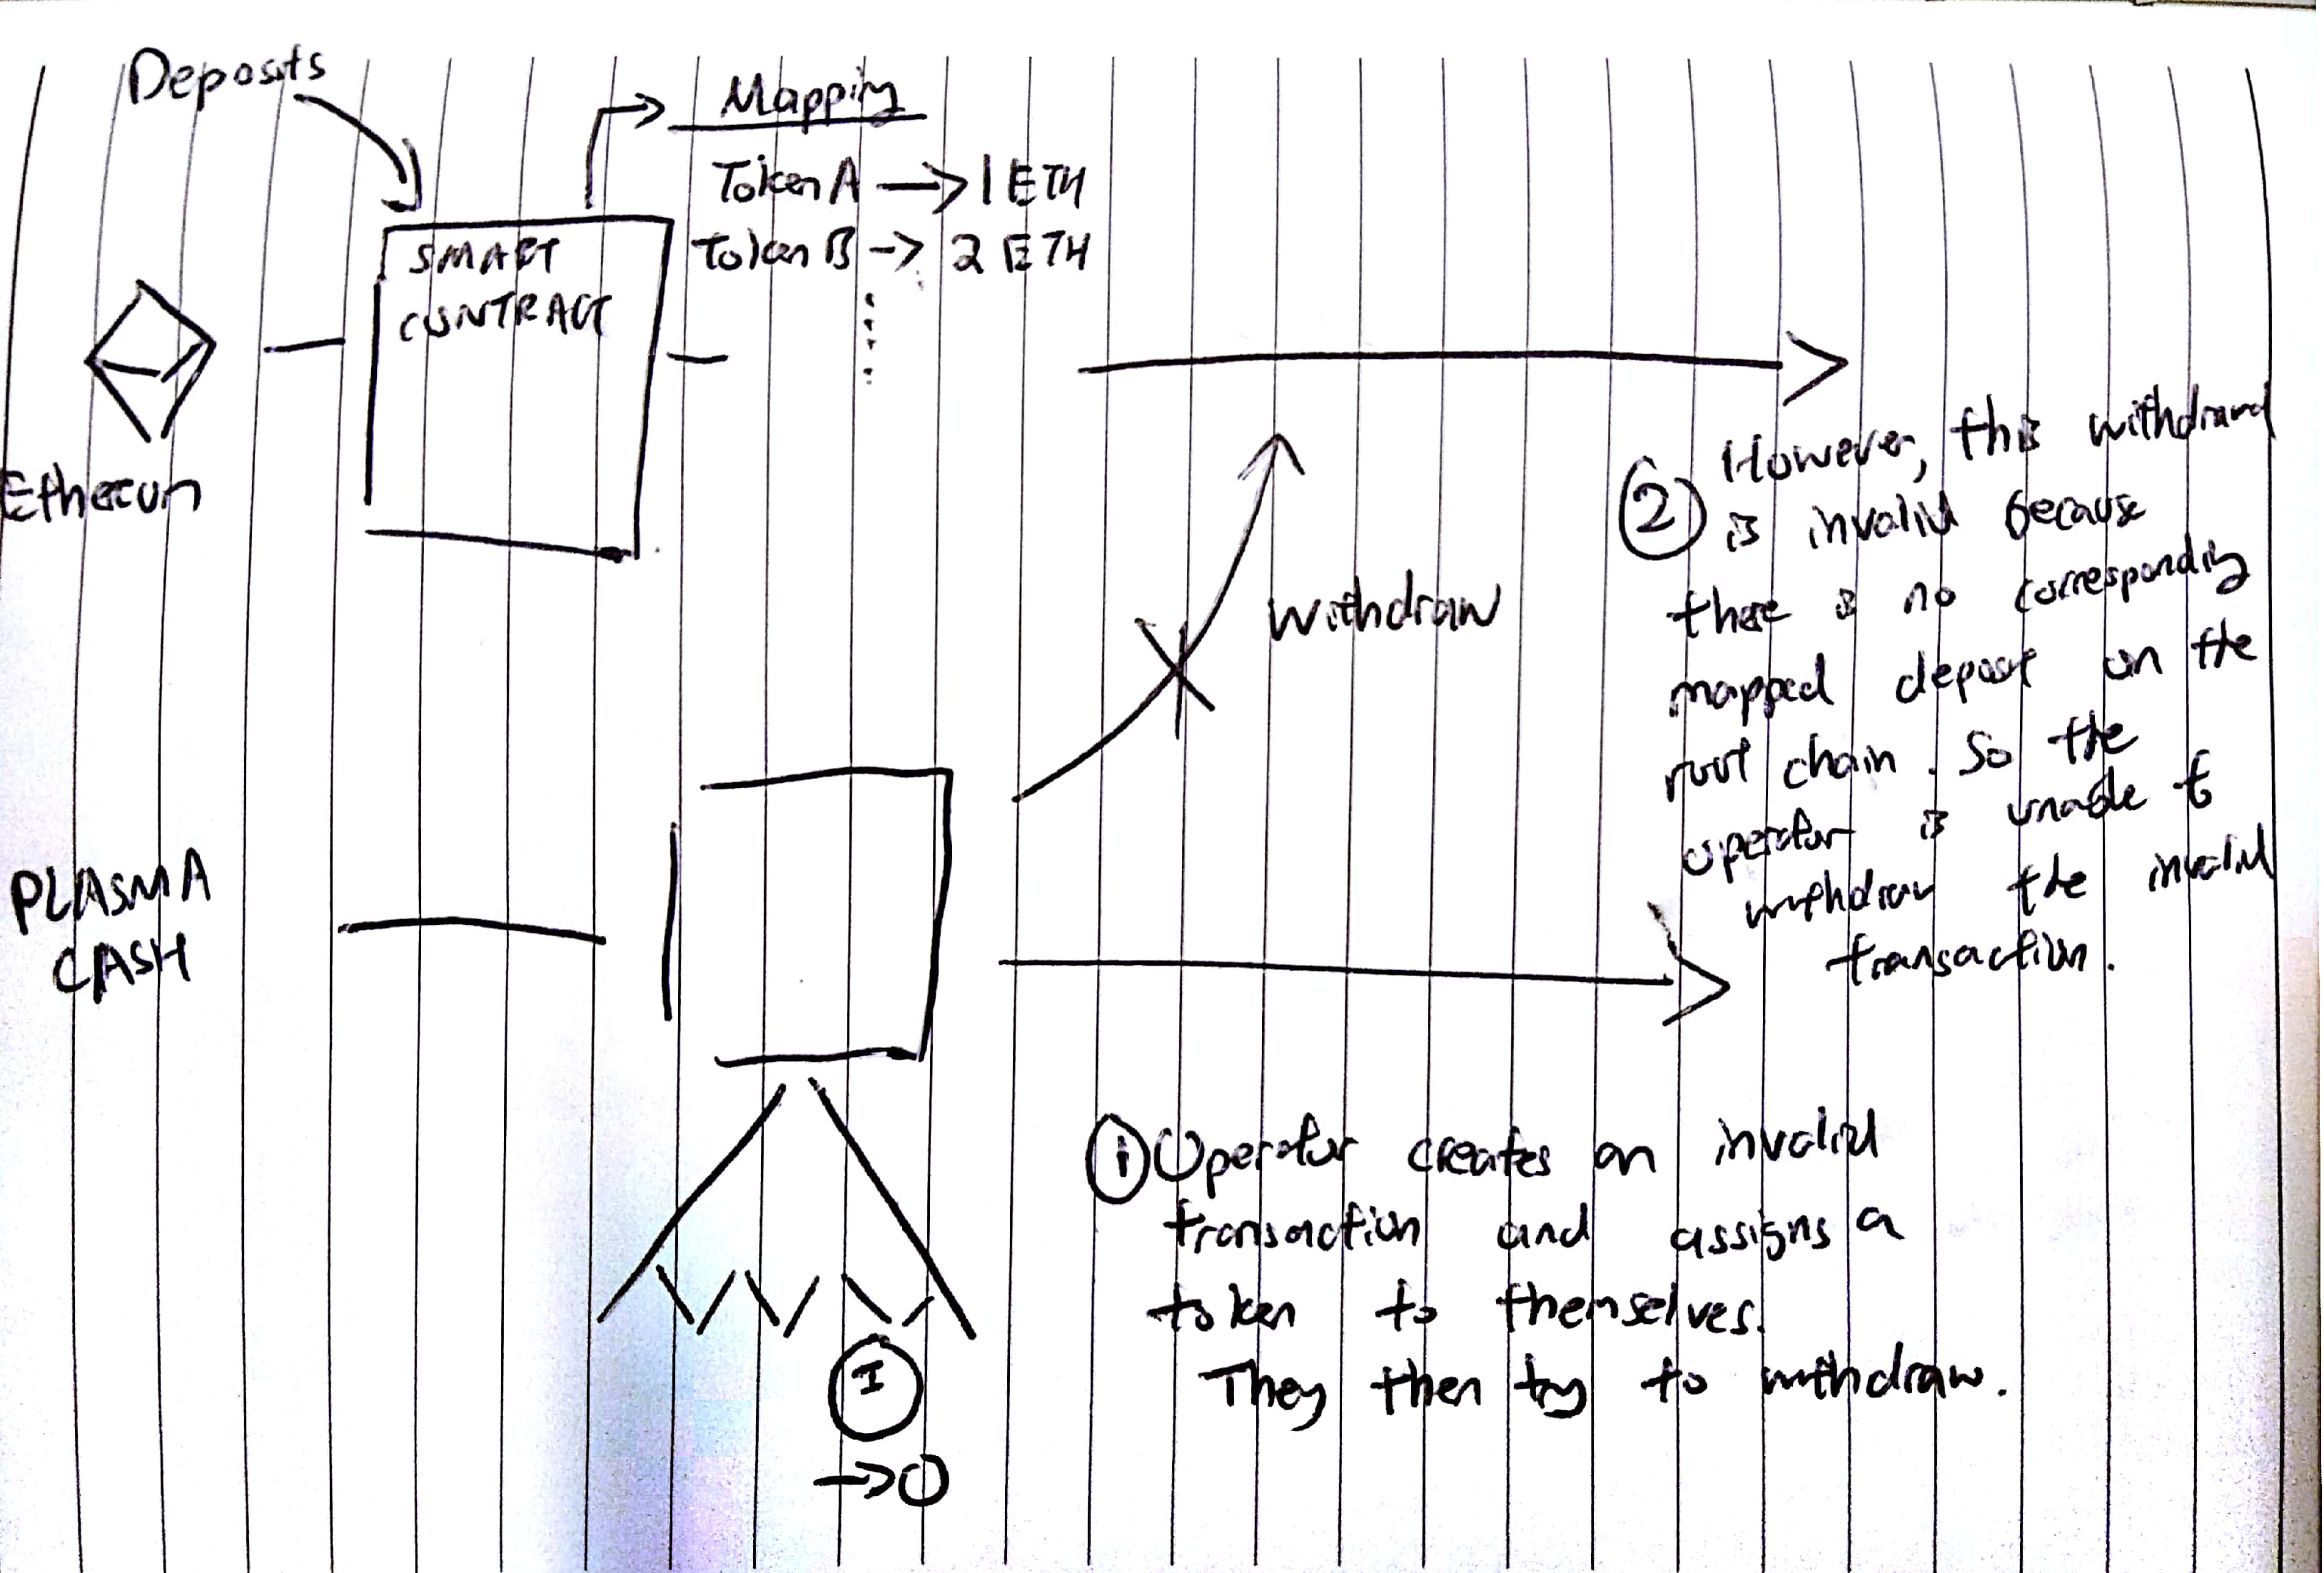 Deposits
Mapping
Token A → 1 ETH
Token B → 2 ETH
SMART
CONTRACT
Ethereum
Withdraw
② However, this withdrawal
is invalid because
there is no corresponding
mapped deposit on the
root chain. So the
operator is unable to
withdraw the invalid
transaction.
PLASMA
CASH
① Operator creates an invalid
transaction and assigns a
token to themselves.
They then try to withdraw.
I
→ O